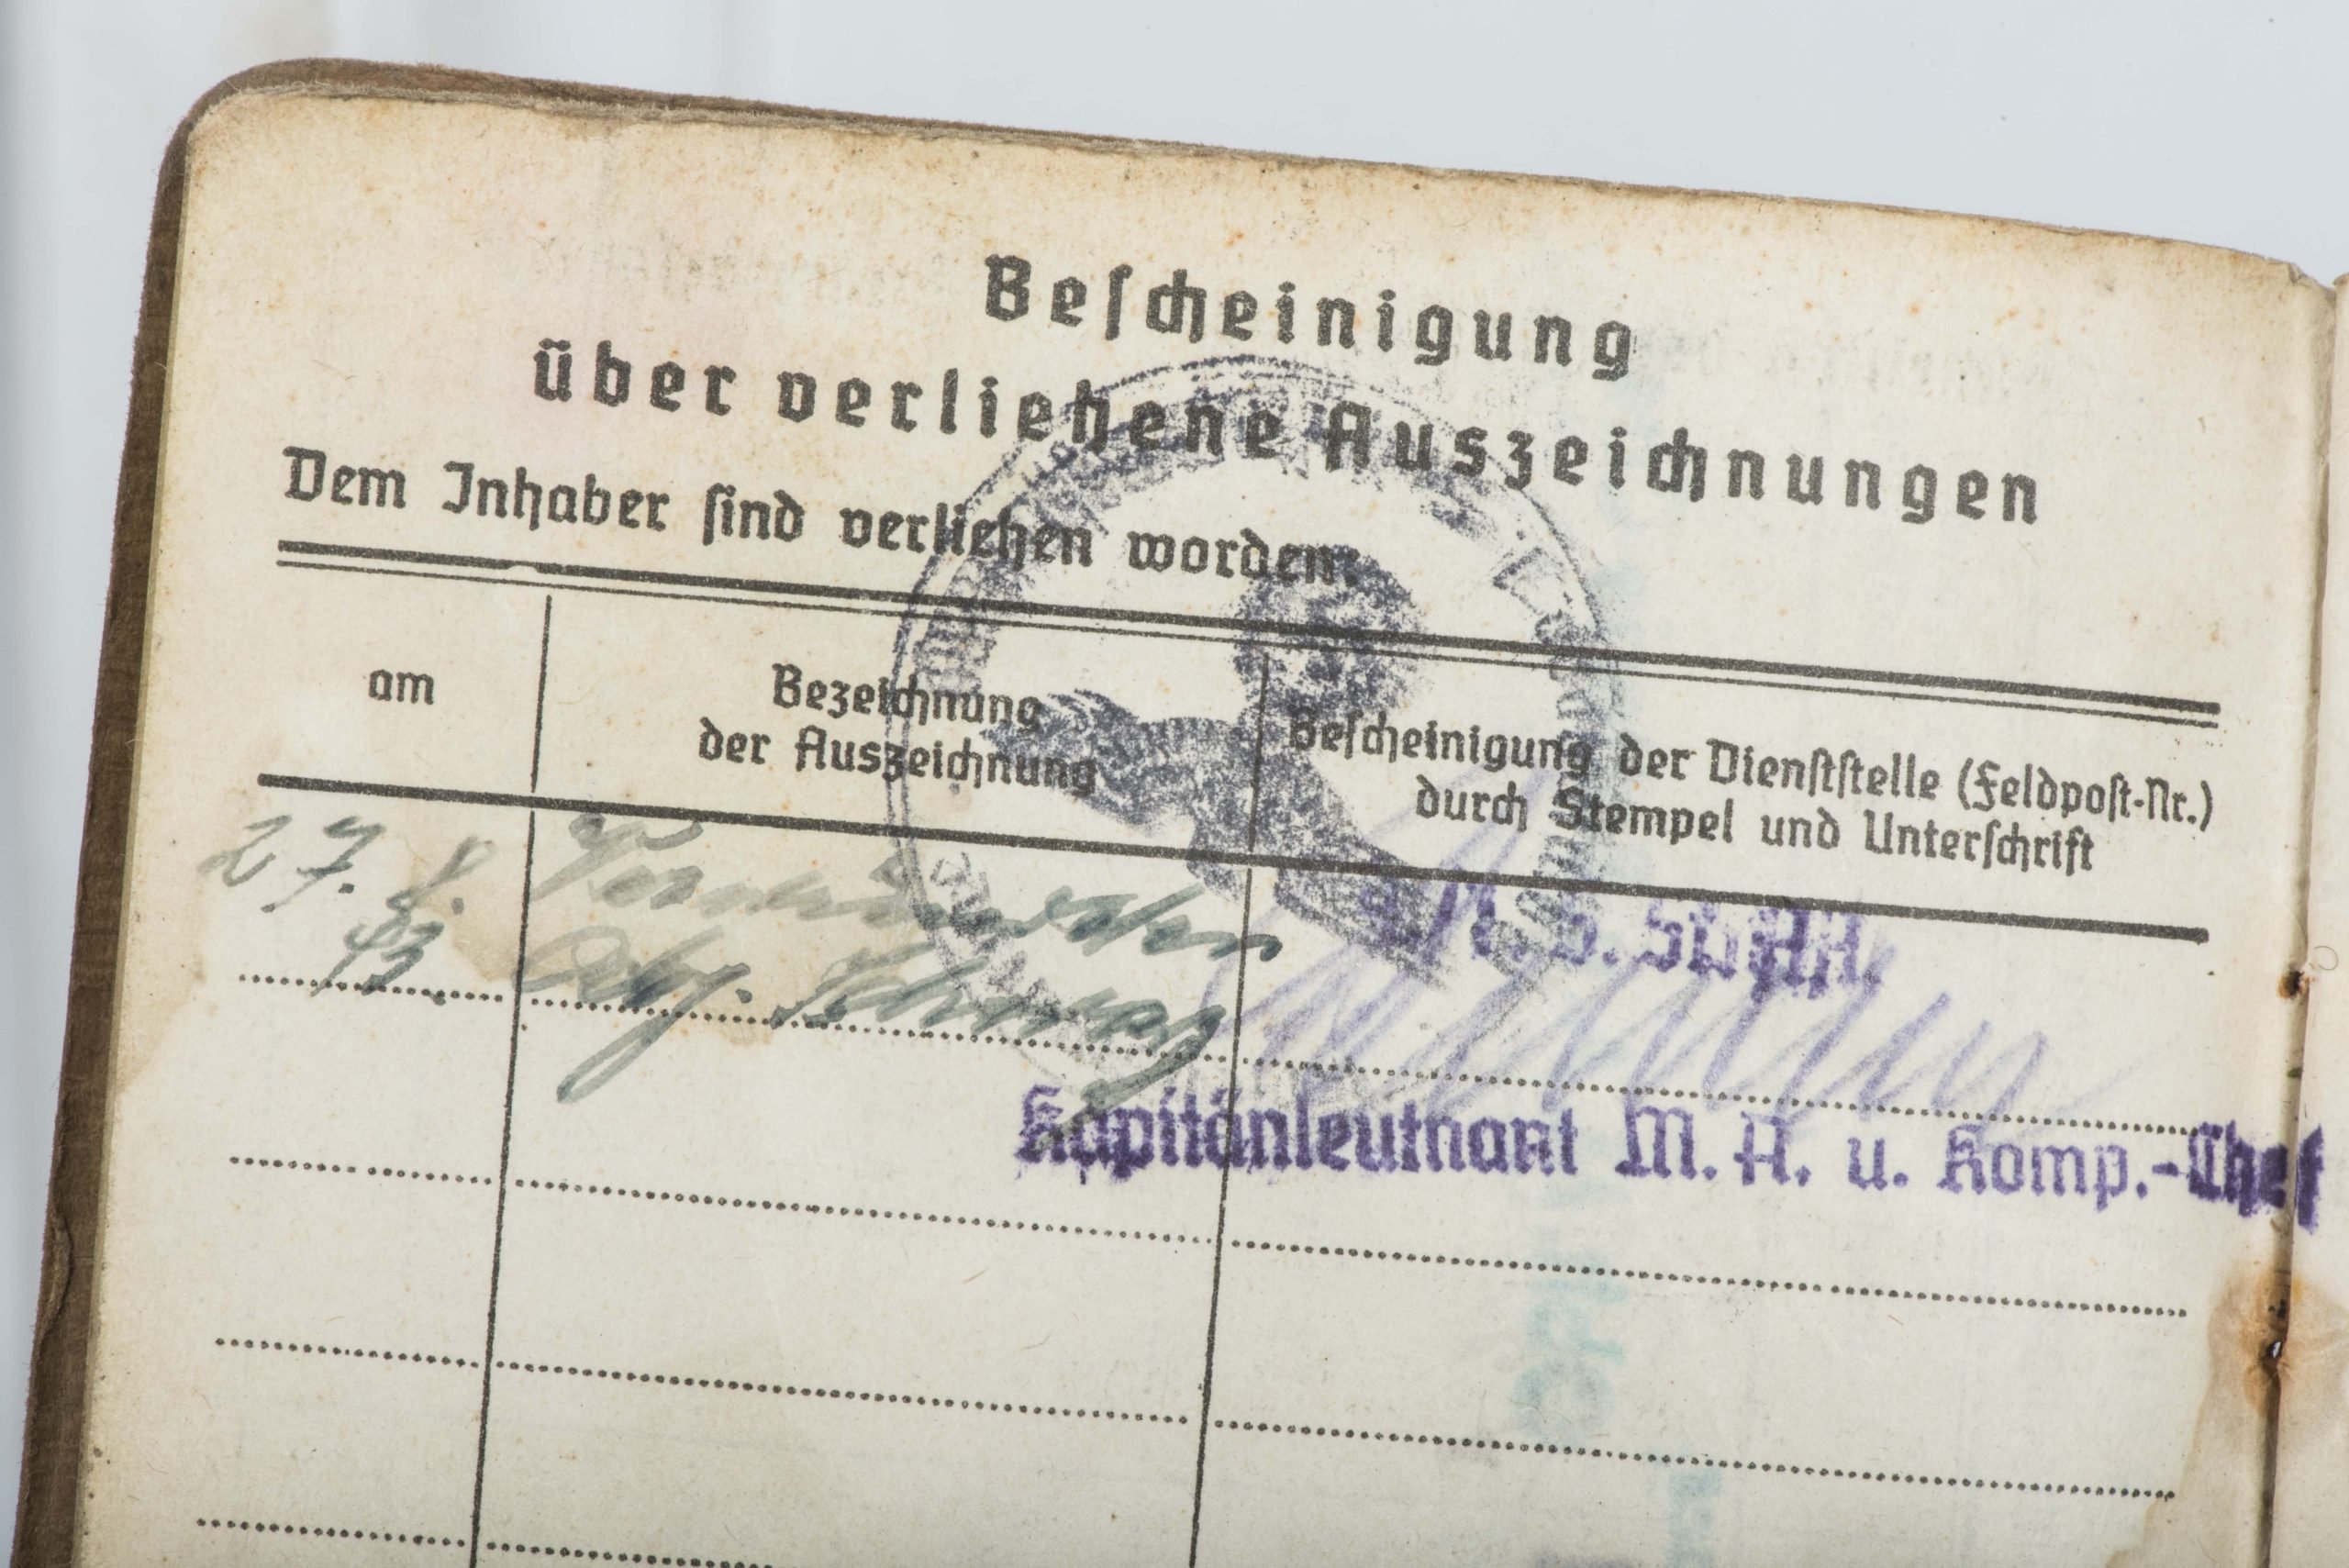 Bescheinigung
über verliehene Auszeichnungen
Dem Inhaber sind verliehen worden:
am
Bezeichnung
der Auszeichnung
Bescheinigung der Dienststelle (Feldpost-Nr.)
durch Stempel und Unterschrift
27. 8.
43.
Verwundeten
Abz. Schwarz
Kapitänleutnant M. A. u. Komp.-Chef